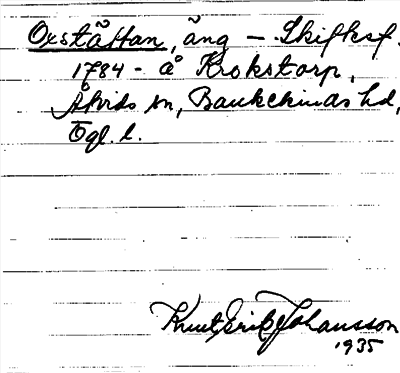 Oxstättan, äng – Skifksf.
1784 - å Krokstorp,
Åtvids sn, Bankekinds hd,
Ögl. l.
Knut Erik Johansson
1935